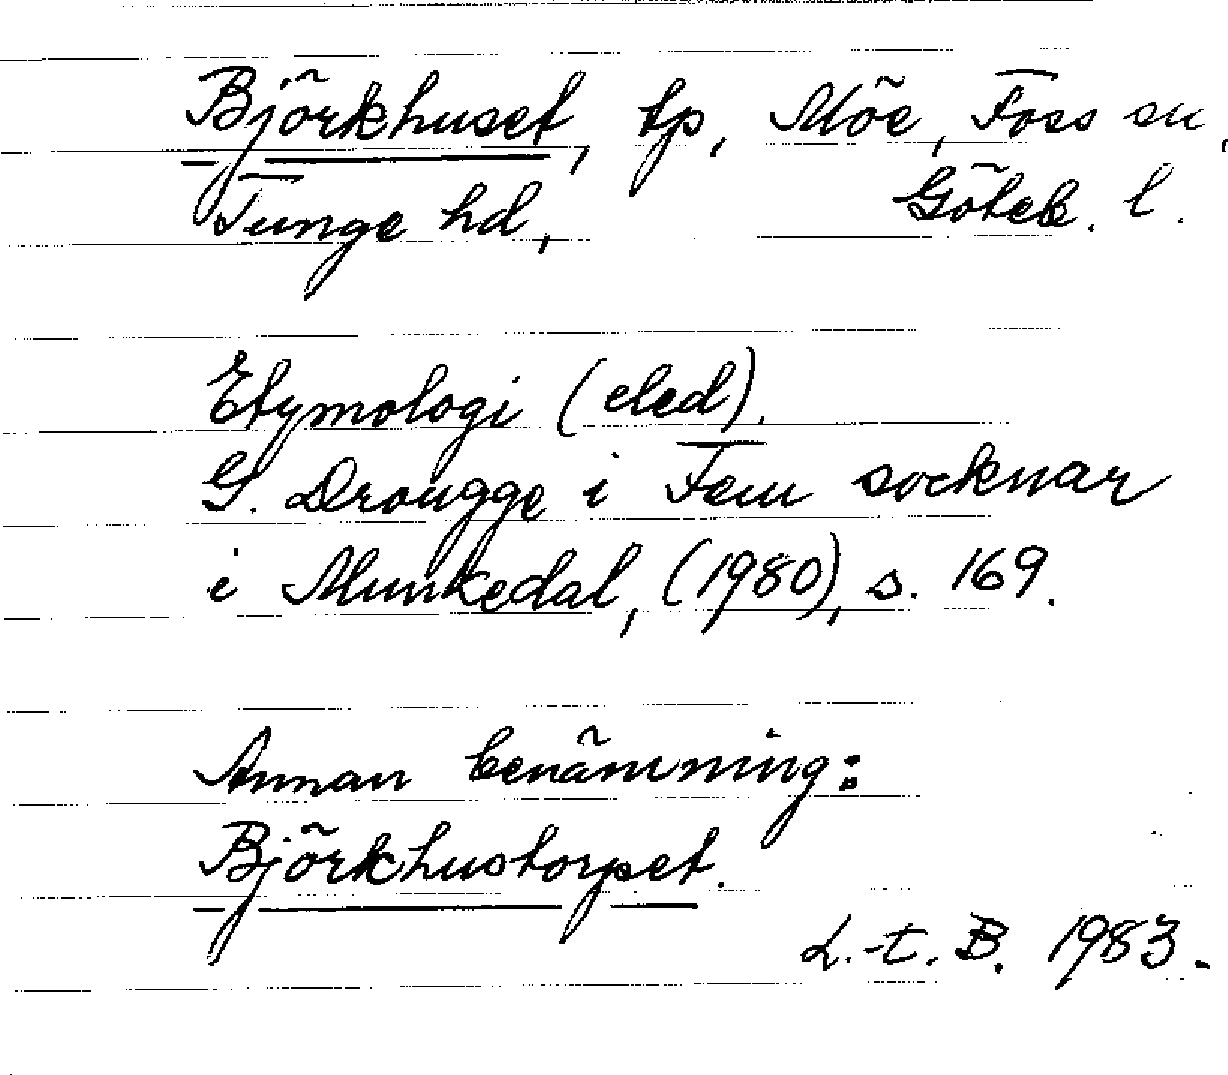 Björkhuset, tp, Möe, Foss sn,
Tunge hd, Göteb. l.
Etymologi (eled).
G. Drougge i Fem socknar
i Munkedal, (1980), s. 169.
Annan benämning:
Björkhustorpet.
L.-t. B. 1983.